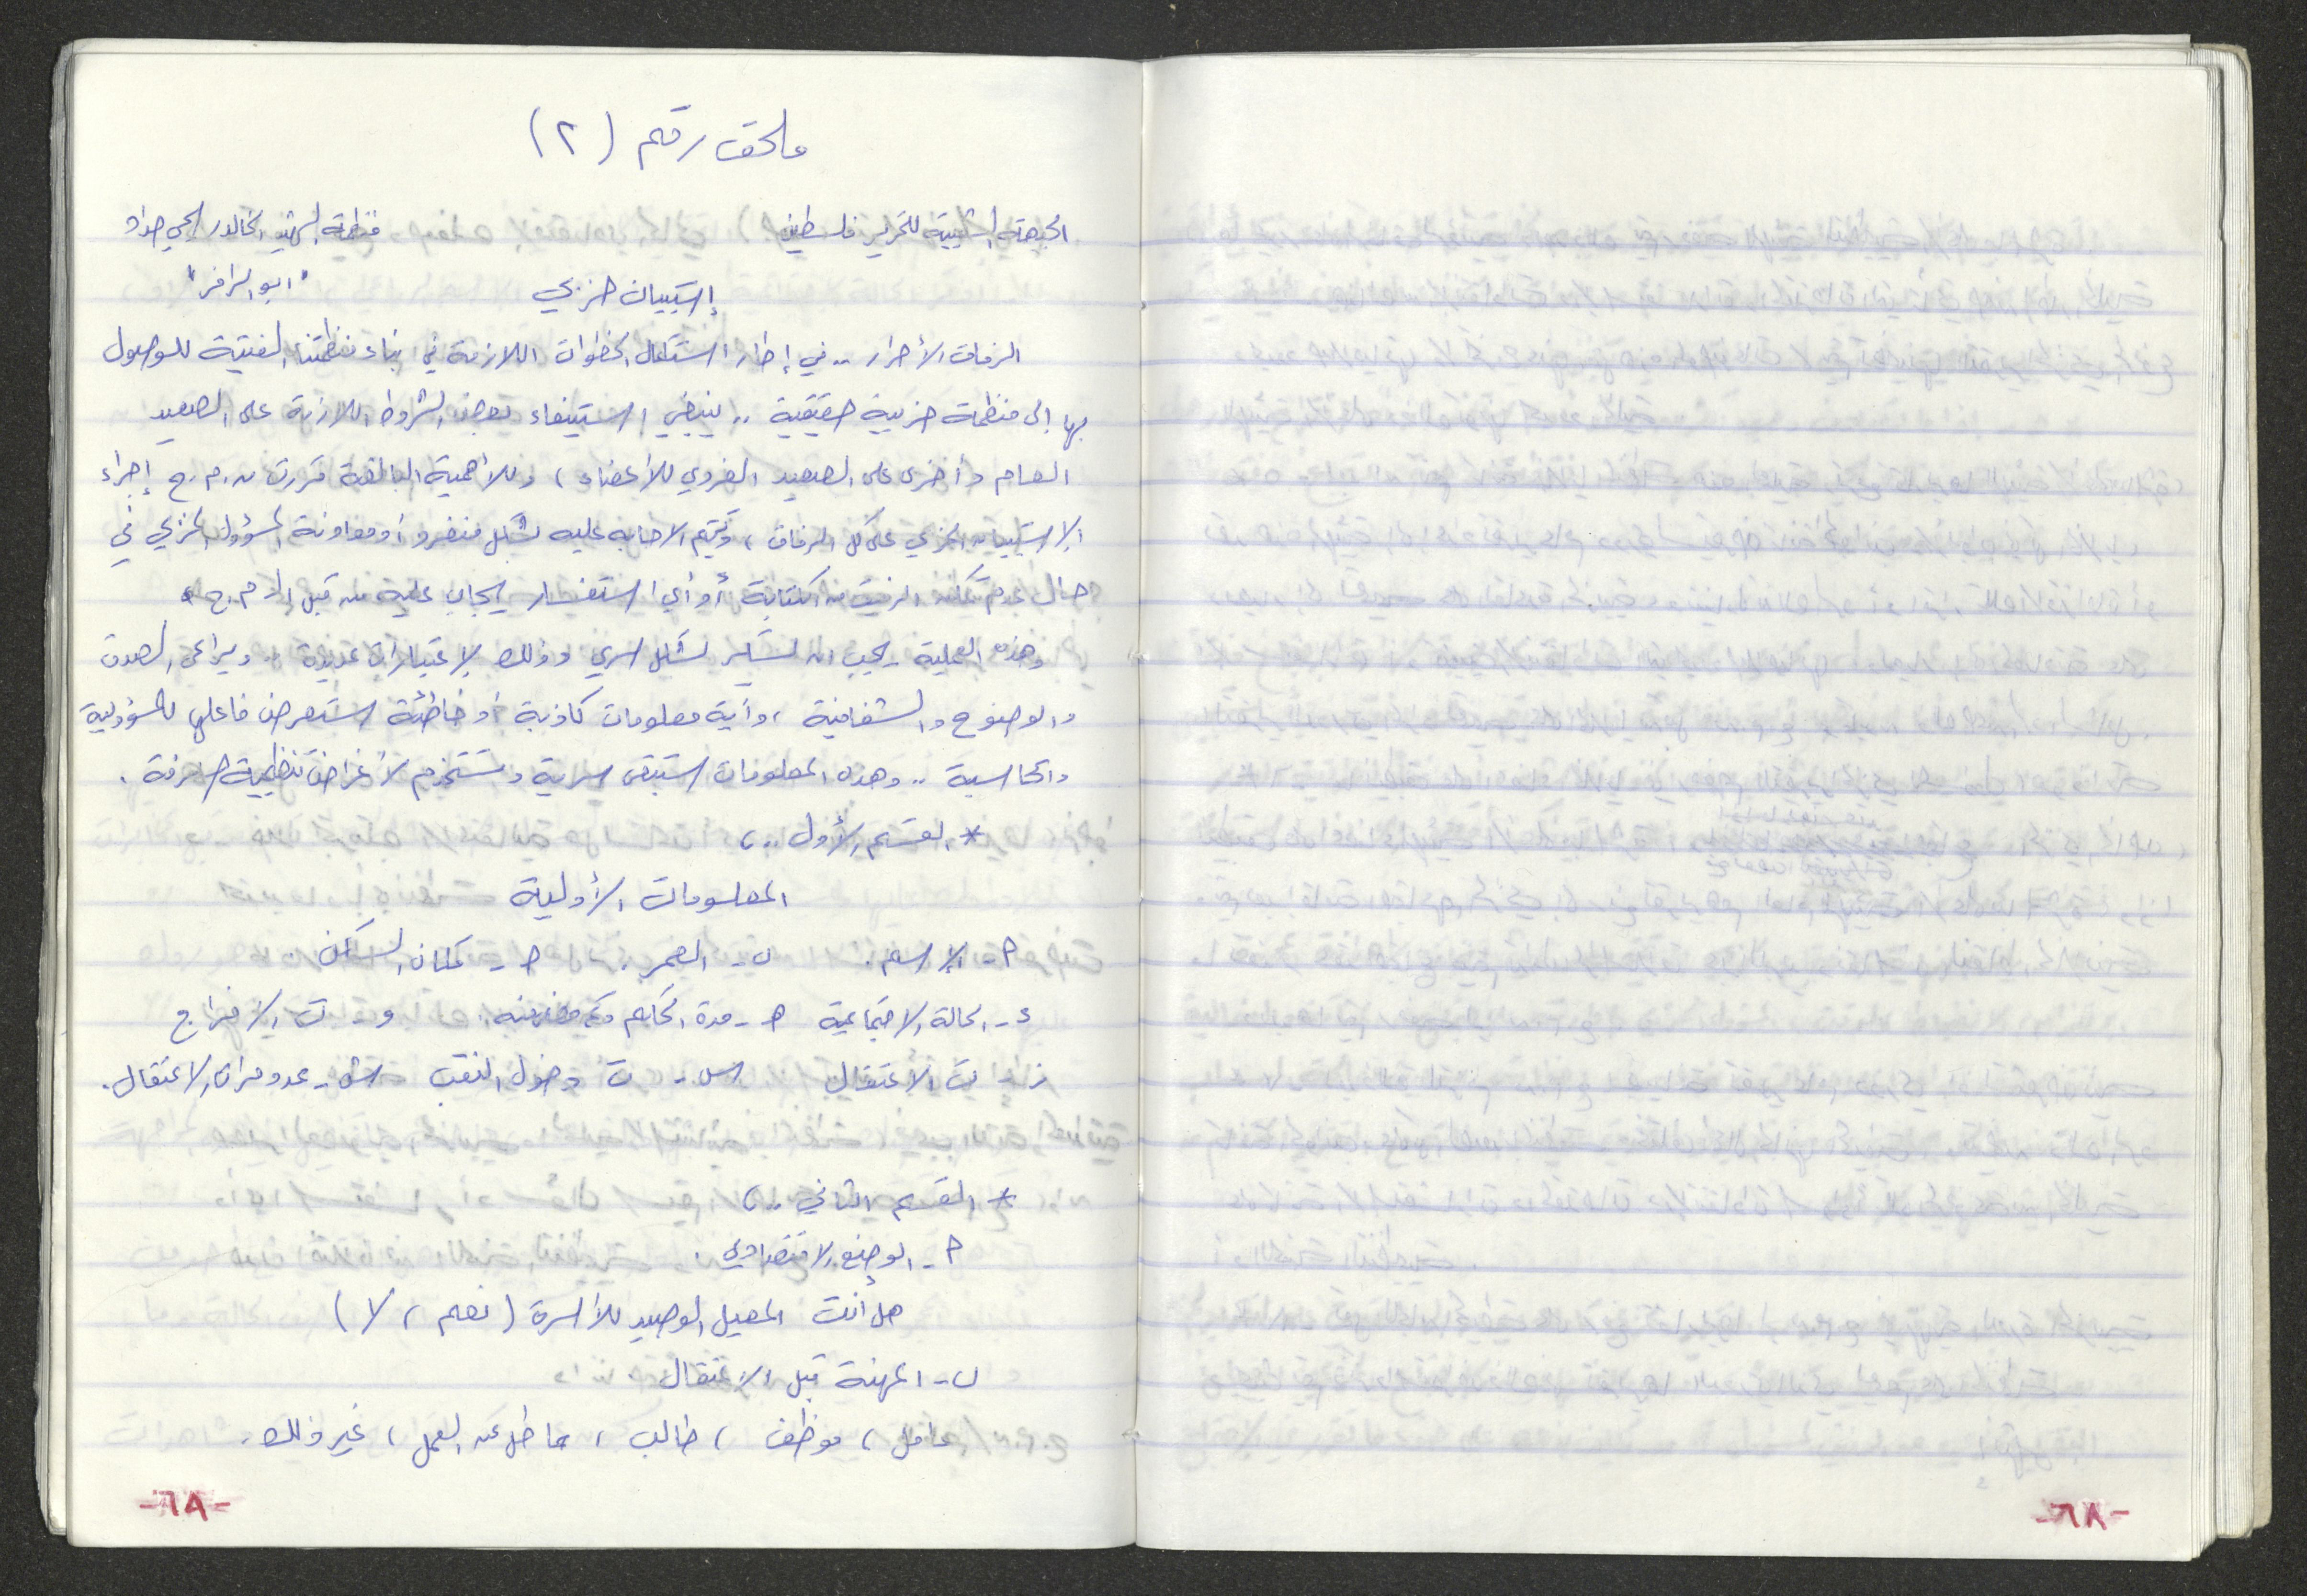 ملحق رقم (٢)
الجبهة الشعبية لتحرير فلسطين منظمة الشهيد الخالد يحي حداد
إستبيان حزبي "ابو الرافز"
الرفاق الأحرار .. في إطار استكمال الخطوات اللازمة في بناء منظمتنا الفتية للوصول
بها إلى منظمة حزبية حقيقية .. ينبغي استيفاء بعض الشروط اللازمة على الصعيد
العام وأخرى على الصعيد الفردي للأعضاء، وللأهمية البالغة قررت ل.م.ح إجراء
الإستبيان الحزبي على كل الرفاق، وتتم الاجابة عليه بشكل منفرد أو معاونة المسؤول الحزبي في
حال عدم تمكن الرفيق من الكتابة أو أي استفسار يجاب عليه من قبل ال م.ح،
وهذه العملية يجب ان تسير بشكل سري وذلك لإعتبارات عديدة .. ويراعى الصدق
والوضوح والشفافية، وأية معلومات كاذبة أو خاطئة ستعرض فاعلها للمسؤولية
والمحاسبة .. وهذه المعلومات ستبقى سرية وتستخدم لأغراض تنظيمية صرفة.
* القسم الأول ..،
المعلومات الأولية
أ- الإسم. ب- العمر. ج- مكان السكن.
د- الحالة الاجتماعية هـ- مدة الحكم وكم مضى منه. و- ت الإفراج
ز- ت الأعتقال س- ت دخول النقب ش- عدد مرات الاعتقال.
* القسم الثاني ..،
أ- الوضع الاقتصادي.
هل أنت المعيل الوحيد للأسرة (نعم، لا)
ب- المهنة قبل الاعتقال
عامل، موظف، طالب، عاطل عن العمل، غير ذلك.
-٦٨-
-٦٨-